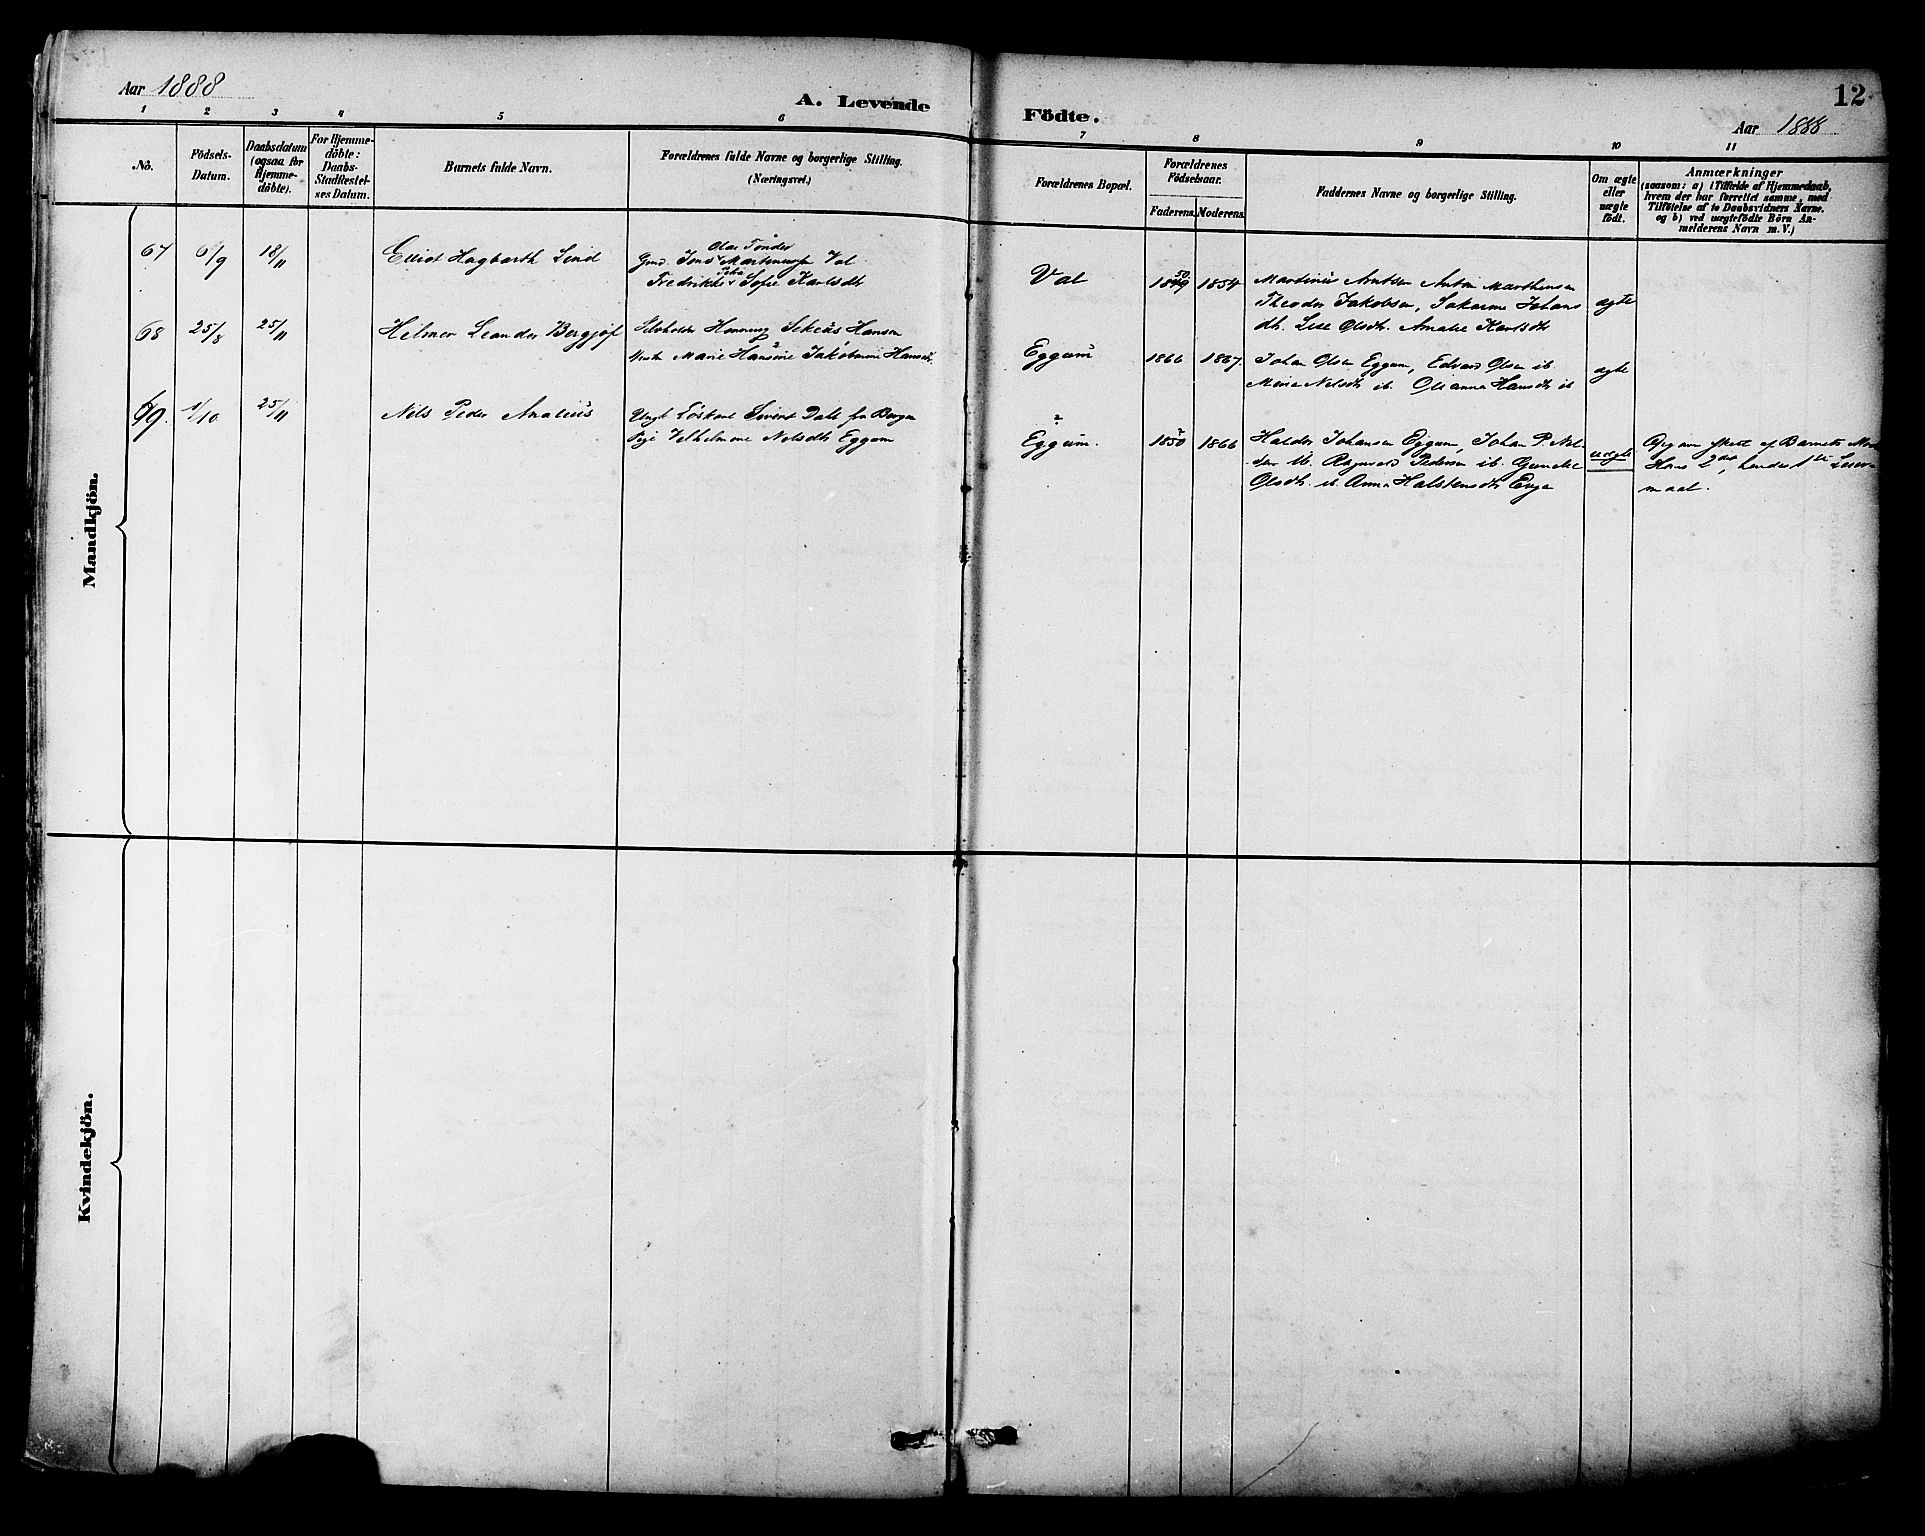 Aar 1888
A. Levende
Födte.
12
Aar 1888
1 2 3 4 5 6 7 8 9 10 11
No.
Födsels-
Datum.
Daabsdatum
(ogsaa for
Hjemme-
döbte).
For Hjemme-
döbte:
Daabs-
Stadfæstel-
ses Datum.
Barnets fulde Navn.
Forældrenes fulde Navne og borgerlige Stilling.
(Næringsvei.)
Forældrenes Bopæl.
Forældrenes
Födselsaar.
Faderens.
Moderens.
Faddernes Navne og borgerlige Stilling.
Om ægte
eller
uægte
födt.
Anmærkninger
(saasom: a) i Tilfælde af Hjemmedaab,
hvem der har forrettet samme, med
Tilföielse af to Daabsvidners Navne,
og b) ved uægtefödte Börn An-
melderens Navn m. V.)
Mandkjön.
67 6/9 18/11 Elliot Hagbarth Lind
Olai Tönder
Gmd. Jens Martinus Val
Fredrikke Sofie Karlsdtr
Val
50
1849 1854
Martinus Arntsen Anton Marthensen
Theodor Jakobsen, Johans
dtr. Lise Olsdtr. Amalie Karlsdtr
ægte
68 25/8 25/11 Helmer Leander Bergjöf
Henning Hansen
Marie Hansine Jakobmine Hansdtr
Eggum
1866 1867.
Johan Olsen Eggum, Edvard Olsen ib.
Nilsdtr ib. Oleanna Hansdtr ib
ægte
69. 1/10 25/11 Nils Peder Analius
Ungk. Löskarl Sivert Dahl fra Bergen
Pige Vilhelmine Nilsdtr Eggum
Eggum.
1850 1866
Haldor Johansen Eggum, Johan P. Nil-
sen ib. Ragnvald Pedersen ib.
Olsdtr. ib. Anna Halstensdtr
uægte
Opgave skett af Barnets Mor
Hans 2det, hendes 1ste Leier-
maal.
Kvindekjön.